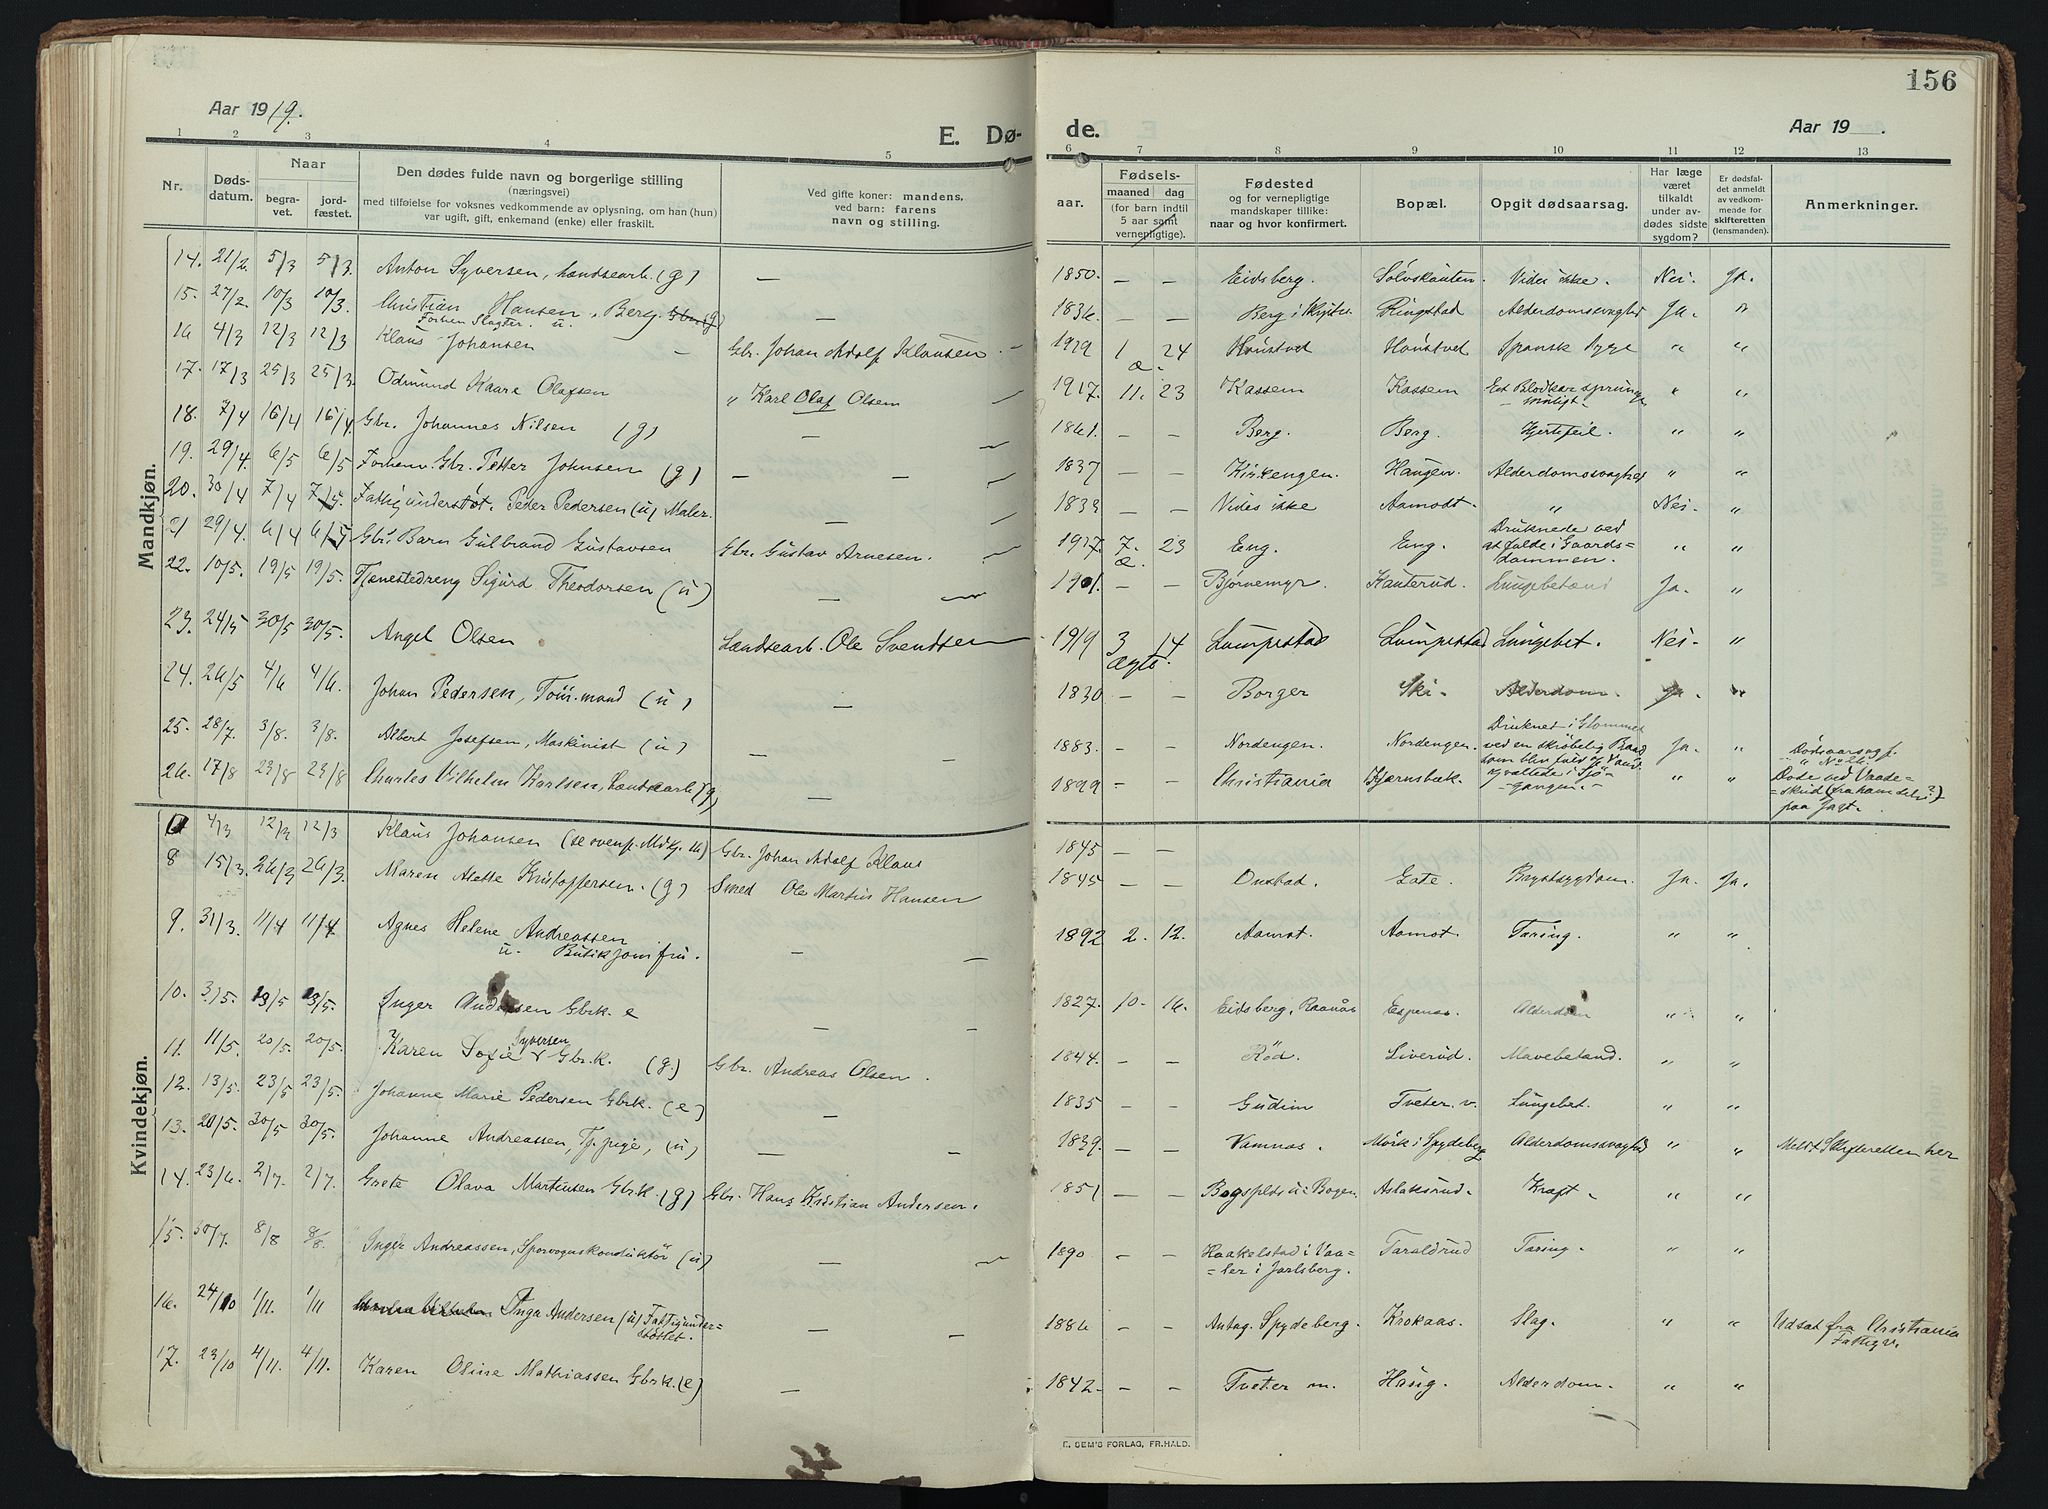 156
Aar 1919.
E. Dø-
de.
Aar 19 .
1 2 3 4 5 6 7 8 9 10 11 12 13
Nr.
Døds-
datum.
Naar
begra-
vet.
jord-
fæstet.
Den dødes fulde navn og borgerlige stilling
(næringsvei)
med tilføielse for voksnes vedkommende av oplysning, om han (hun)
var ugift, gift, enkemand (enke) eller fraskilt.
Ved gifte koner: mandens,
ved barn: farens
navn og stilling.
aar.
Fødsels-
maaned dag
(for barn indtil
5 aar samt
vernepligtige).
Fødested
og for vernepligtige
mandskaper tillike:
naar og hvor konfirmert.
Bopæl.
Opgit dødsaarsag.
Har læge
været
tilkaldt
under av-
dødes sidste
sygdom?
Er dødsfal-
det anmeldt
av vedkom-
mende for
skifteretten
(lensmanden).
Anmerkninger.
Mandkjøn.
14. 21/2. 5/3 5/3. Anton Syversen, Landsearb. (g) — 1850. — — Eidsberg. Sølvskauten. Vides ikke. Nei. Ja.
15. 27/2. 10/3 10/3. Christian Hansen, Berg. Gbr. (g) — 1836. — — Berg i Skiptv. Ringstad Alderdomssvaghed Ja. "
Forhen Slagter. u.
16 4/3 12/3 12/3 Klaus Johansen — Gbr. Johan Adolf Klausen. 1919 1 24 Haustvet Haustvet Spansk Syge " "
17. 17/3 25/3 25/3. Odmund Kaare Olafsen " Karl Olaf Olsen 1917. 11. 23 Kassem Kassem Et Blodkar sprunget " "
18. 7/4 16/4 16/4. Gbr. Johannes Nilsen (g) — 1861. — — Berg. Berg. Hjertefeil. " "
19. 29/4. 6/5 6/5 Forhenv. Gbr. Petter Johnsen (g) — 1837 — — Kirkengen. Haugen. Alderdomssvaghed " "
20. 30/4 7/4 7/5. Fattigunderstøt. Peder Pedersen (u) Maler. — 1833 — — Vides ikke Aamodt. " Nei. "
21 29/4. 6/4 6/5 Gbr's Barn Gulbrand Gustavsen Gbr. Gustav Arnesen. 1917. 7. 23 Eng. Eng. Druknede ved
at falde i Gaards=
dammen. " "
22. 10/5. 19/5 19/5. Tjenestedreng Sigurd Theodorsen (u) — 1901. — — Bjørnemyr. Kanterud. Lungebetænd Ja. "
23. 24/5 30/5 30/5. Angel Olsen Landsearb. Ole Svendsen 1919 3 14 Lumpestad Lumpestad Lungebet. Nei. "
24. 26/5 4/6 4/6. Johan Pedersen, Tøm.mand (u) — 1830 — — Borger Ski. Alderdom. Ja. "
25. 28/7. 3/8. 3/8. Albert Josefsen, Maskinist (u) — 1883. — — Nordengen. Nordengen. Druknet i Glommen
ved en skrøbelig Baad
som blev fuld af Vand
og vältede i Sjø=
gangen. Ja. "
26. 17/8 23/8 23/8 Charles Vilhelm Karlsen, Landsearb (g) — 1899 — — Christiania Kjærnsbæk. " " Døde ved Vaade=
=skud (fra handelsv?)
paa Jagt.
Kvindekjøn.
4/3 12/3 12/3 Klaus Johansen (se ovenf. Mdkj. 16) Gbr. Johan Adolf Klaus 1845
8 15/3. 26/3 26/3. Maren Anette Kristoffersen. (g) Smed Ole Martius Hansen 1845 — — Onstad. Gate. Brystsygdom. Ja. Ja.
9. 31/3. 11/4 11/4 Agnes Helene Andreassen
u. Butikjomfru. — 1892 2. 12. Aamot. Aamot. Tæring. " "
10. 3/5. 13/5 13/5. Inger Andersen Gbrk. e — 1827. 10. 16. Eidsberg, Raanås Espenæs. Alderdom " "
11. 11/5. 20/5. 20/5. Karen Sofie Syversen Gbr.k. (g.) Gbr. Andreas Olsen. 1844. — — Rød. Liverud. Mavebetænd. " "
12. 13/5. 23/5 23/5. Johanne Marie Pedersen Gbrk. (e) — 1835 — — Gudim Tveter. v. Lungebet. " "
13. 20/5. 30/5 30/5. Johanne Andreassen, Tj.pige, (u) — 1839. — — Vamnæs. Mørk i Spydeberg Alderdomssvaghed " " Meldt Skifteretten her
14. 23/6. 2/7. 2/7. Grete Olava Martinsen Gbrk. (g) Gbr. Hans Kristian Andersen. 1851 — — Bogsplds u. Bogen. Aslaksrud. Kræft. " "
15. 30/7. 8/8 8/8. Inger Andreassen, Sporvognskonduktør (u) — 1890 — — Haakelstad i Vaa=
=ler i Jarlsberg. Taraldrud Tæring. " "
16. 24/10 1/11. 1/11 Inga Andersen (u) Fattigunder=
støttet. — 1886 — — Antag. Spydeberg. Krokaas. Slag. " " Udsat fra Christiania
Fattigv.
17. 23/10 4/11. 4/11. Karen Oline Mathiassen Gbrk. (e) — 1842. — — Tveter m. Haug. Alderdom. " "
E. SEM'S FORLAG, FR.HALD.